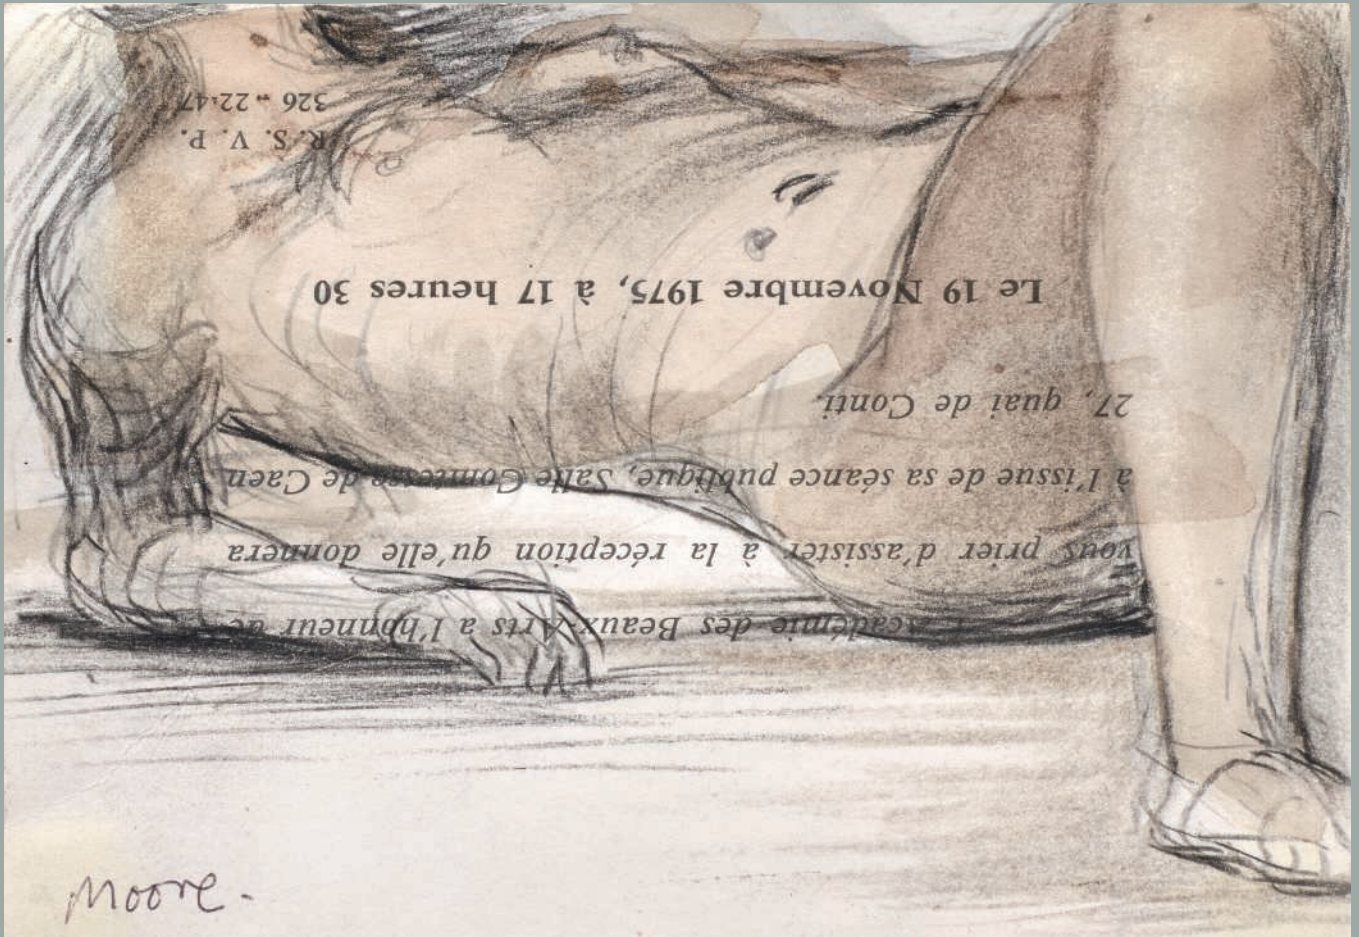 L'Académie des Beaux-Arts a l'honneur de
vous prier d'assister à la réception qu'elle donnera
à l'issue de sa séance publique, Salle Comtesse de Caen
27, quai de Conti.
Le 19 Novembre 1975, à 17 heures 30
R. S. V. P.
326 - 22-47
Moore.